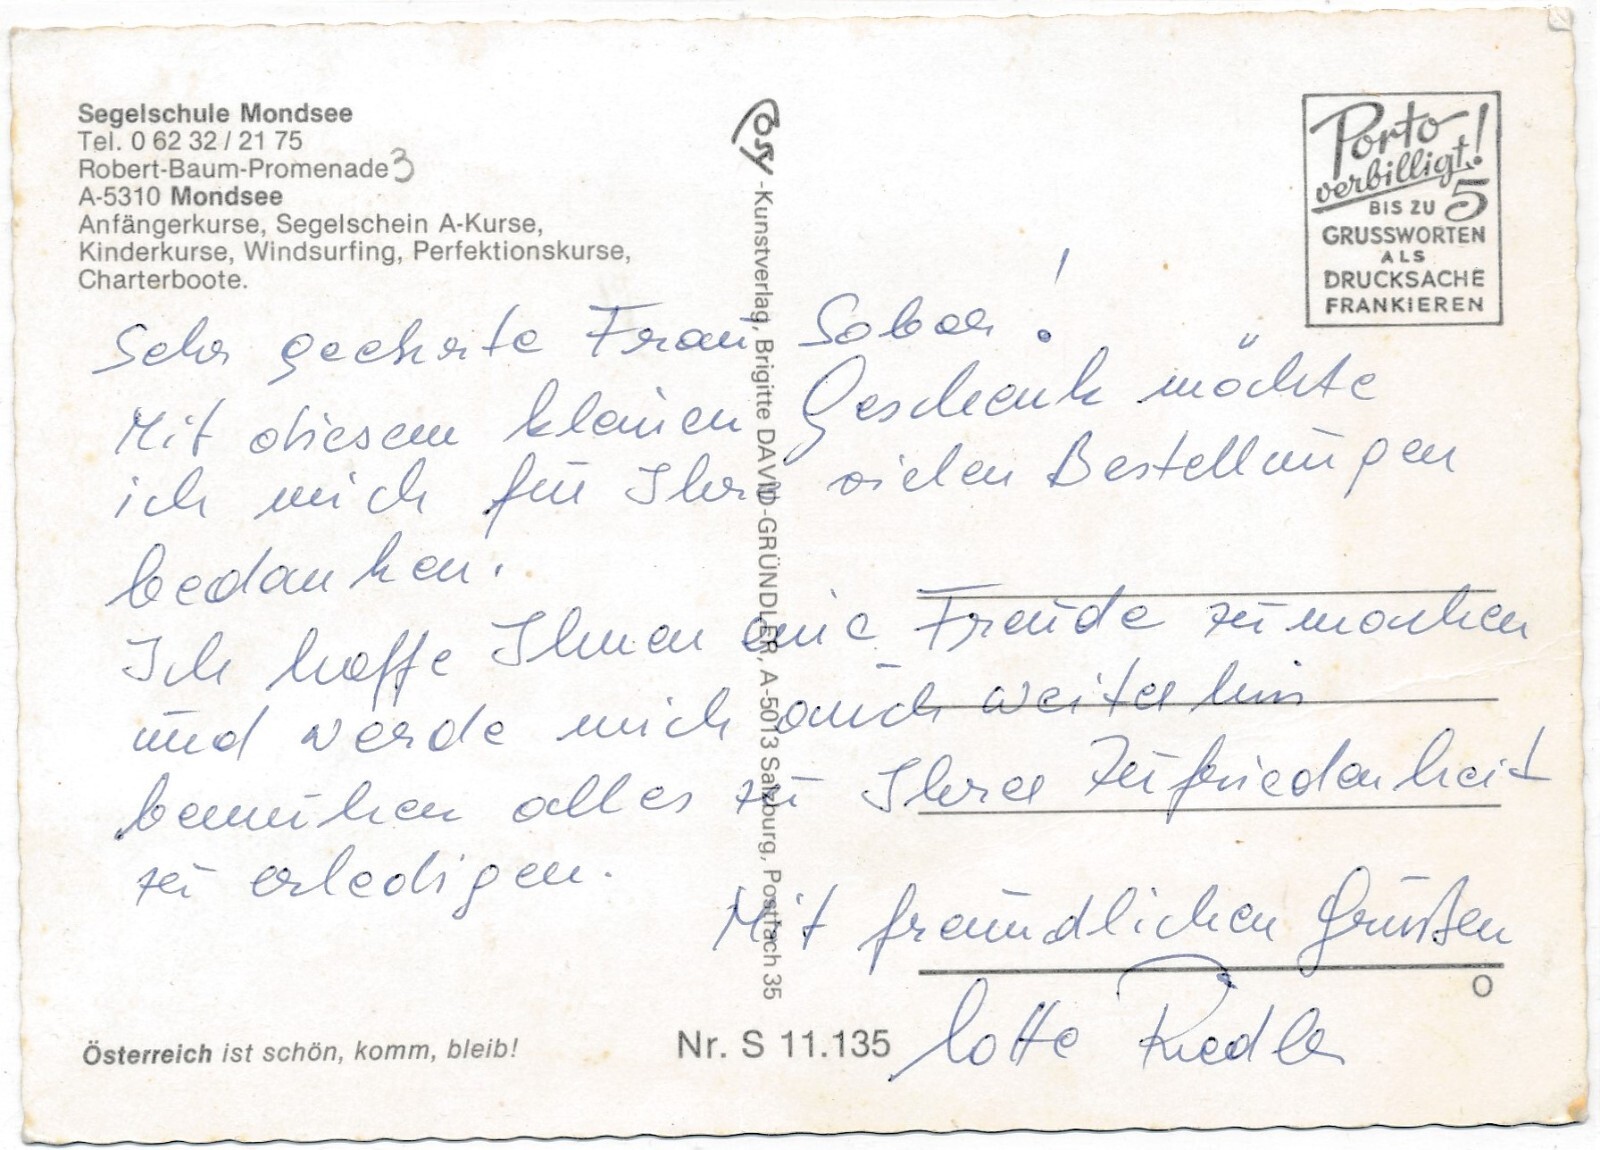 Segelschule Mondsee
Tel. 0 62 32 / 21 75
Robert-Baum-Promenade 3
A-5310 Mondsee
Anfängerkurse, Segelschein A-Kurse,
Kinderkurse, Windsurfing, Perfektionskurse,
Charterboote.
Cosy-Kunstverlag, Brigitte DAVID-GRÜNDLER, A-5013 Salzburg, Postfach 35
Porto
verbilligt!
BIS ZU 5
GRUSSWORTEN
ALS
DRUCKSACHE
FRANKIEREN
Sehr geehrte Frau !
Mit diesem kleinen Geschenk möchte
ich mich für Ihre vielen Bestellungen
bedanken.
Ich hoffe Ihnen eine Freude zu machen
und werde mich auch weiterhin
bemühen alles zu Ihrer Zufriedenheit
zu erledigen.
Mit freundlichen Grüßen
Lotte Riedler
Österreich ist schön, komm, bleib!
Nr. S 11.135
O